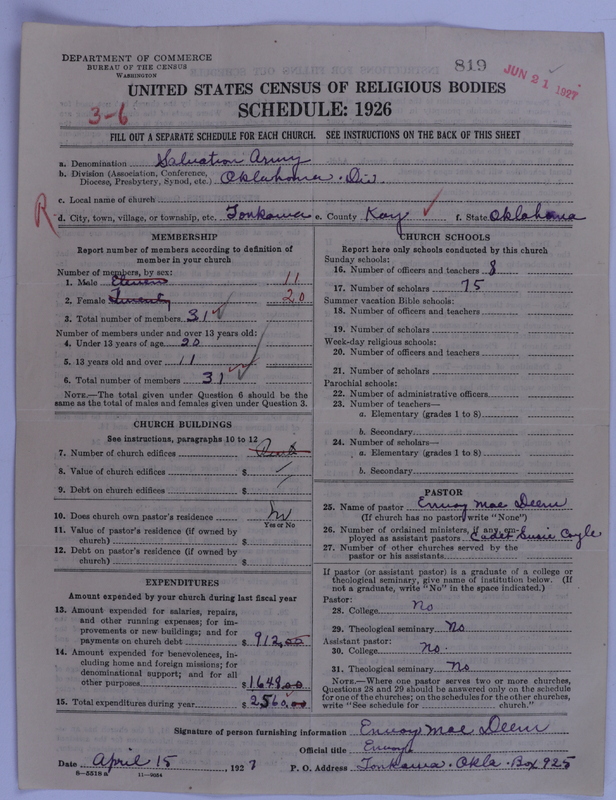 DEPARTMENT OF COMMERCE
BUREAU OF THE CENSUS
WASHINGTON
819
JUN 21 1927
UNITED STATES CENSUS OF RELIGIOUS BODIES
SCHEDULE: 1926
3-6
FILL OUT A SEPARATE SCHEDULE FOR EACH CHURCH. SEE INSTRUCTIONS ON THE BACK OF THIS SHEET
a. Denomination Salvation Army
b. Division (Association, Conference, Diocese, Presbytery, Synod, etc.) Oklahoma. Div
c. Local name of church
R
d. City, town, village, or township, etc. Tonkawa e. County Kay f. State Oklahoma
MEMBERSHIP
Report number of members according to definition of
member in your church
Number of members, by sex:
1. Male Eleven 11
2. Female Twenty 20
3. Total number of members 31
Number of members under and over 13 years old:
4. Under 13 years of age 20
5. 13 years old and over 11
6. Total number of members 31
NOTE.—The total given under Question 6 should be the
same as the total of males and females given under Question 3.
CHURCH BUILDINGS
See instructions, paragraphs 10 to 12
7. Number of church edifices Rent
8. Value of church edifices $
9. Debt on church edifices $
10. Does church own pastor's residence
Yes or No
11. Value of pastor's residence (if owned by
church) $
12. Debt on pastor's residence (if owned by
church) $
EXPENDITURES
Amount expended by your church during last fiscal year
13. Amount expended for salaries, repairs,
and other running expenses; for im-
provements or new buildings; and for
payments on church debt $ 912.00
14. Amount expended for benevolences, in-
cluding home and foreign missions; for
denominational support; and for all
other purposes $ 1648.00
15. Total expenditures during year $ 2560.00
CHURCH SCHOOLS
Report here only schools conducted by this church
Sunday schools:
16. Number of officers and teachers 8
17. Number of scholars 75
Summer vacation Bible schools:
18. Number of officers and teachers
19. Number of scholars
Week-day religious schools:
20. Number of officers and teachers
21. Number of scholars
Parochial schools:
22. Number of administrative officers
23. Number of teachers—
a. Elementary (grades 1 to 8)
b. Secondary
24. Number of scholars—
a. Elementary (grades 1 to 8)
b. Secondary
PASTOR
25. Name of pastor Envoy Mae Deem
(If church has no pastor, write "None")
26. Number of ordained ministers, if any, em-
ployed as assistant pastors Cadet Susie Coyle
27. Number of other churches served by the
pastor or his assistants
If pastor (or assistant pastor) is a graduate of a college or
theological seminary, give name of institution below. (If
not a graduate, write "No" in the space indicated.)
Pastor:
28. College No
29. Theological seminary No
Assistant pastor:
30. College No.
31. Theological seminary No
NOTE.—Where one pastor serves two or more churches,
Questions 28 and 29 should be answered only on the schedule
for one of the churches; on the schedules for the other churches,
write "See schedule for church."
Signature of person furnishing information Envoy Mae Deem
Official title Envoy
Date April 15, 1927 P. O. Address Tonkawa. Okla. Box 925
8—5518 a 11—9054